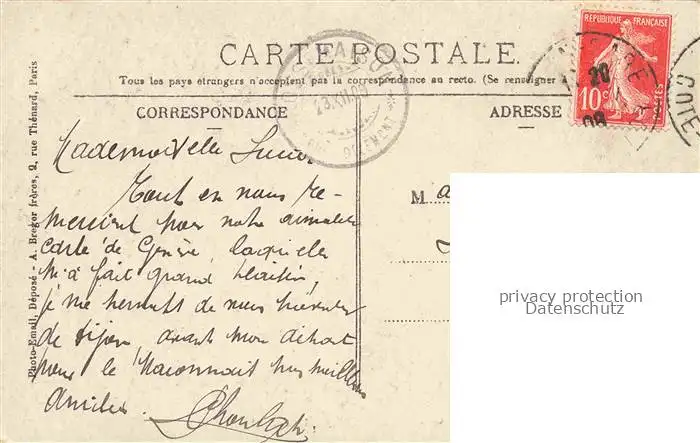 CARTE POSTALE
Tous les pays étrangers n'acceptent pas la correspondance au recto. (Se renseigner
CORRESPONDANCE
ADRESSE
REPUBLIQUE FRANÇAISE
10c
POSTES
20
09
COTE
23.XII.09
Photo-Email, Déposé - A. Breger frères, 9, rue Thénard, Paris
Mademoiselle
Tout en vous re-
merciant pour votre aimable
carte de Genève, laquelle
m'a fait grand plaisir,
je me permets de vous
de Dijon, avant mon départ
pour le mes meilleures
amitiés.
M
privacy protection
Datenschutz